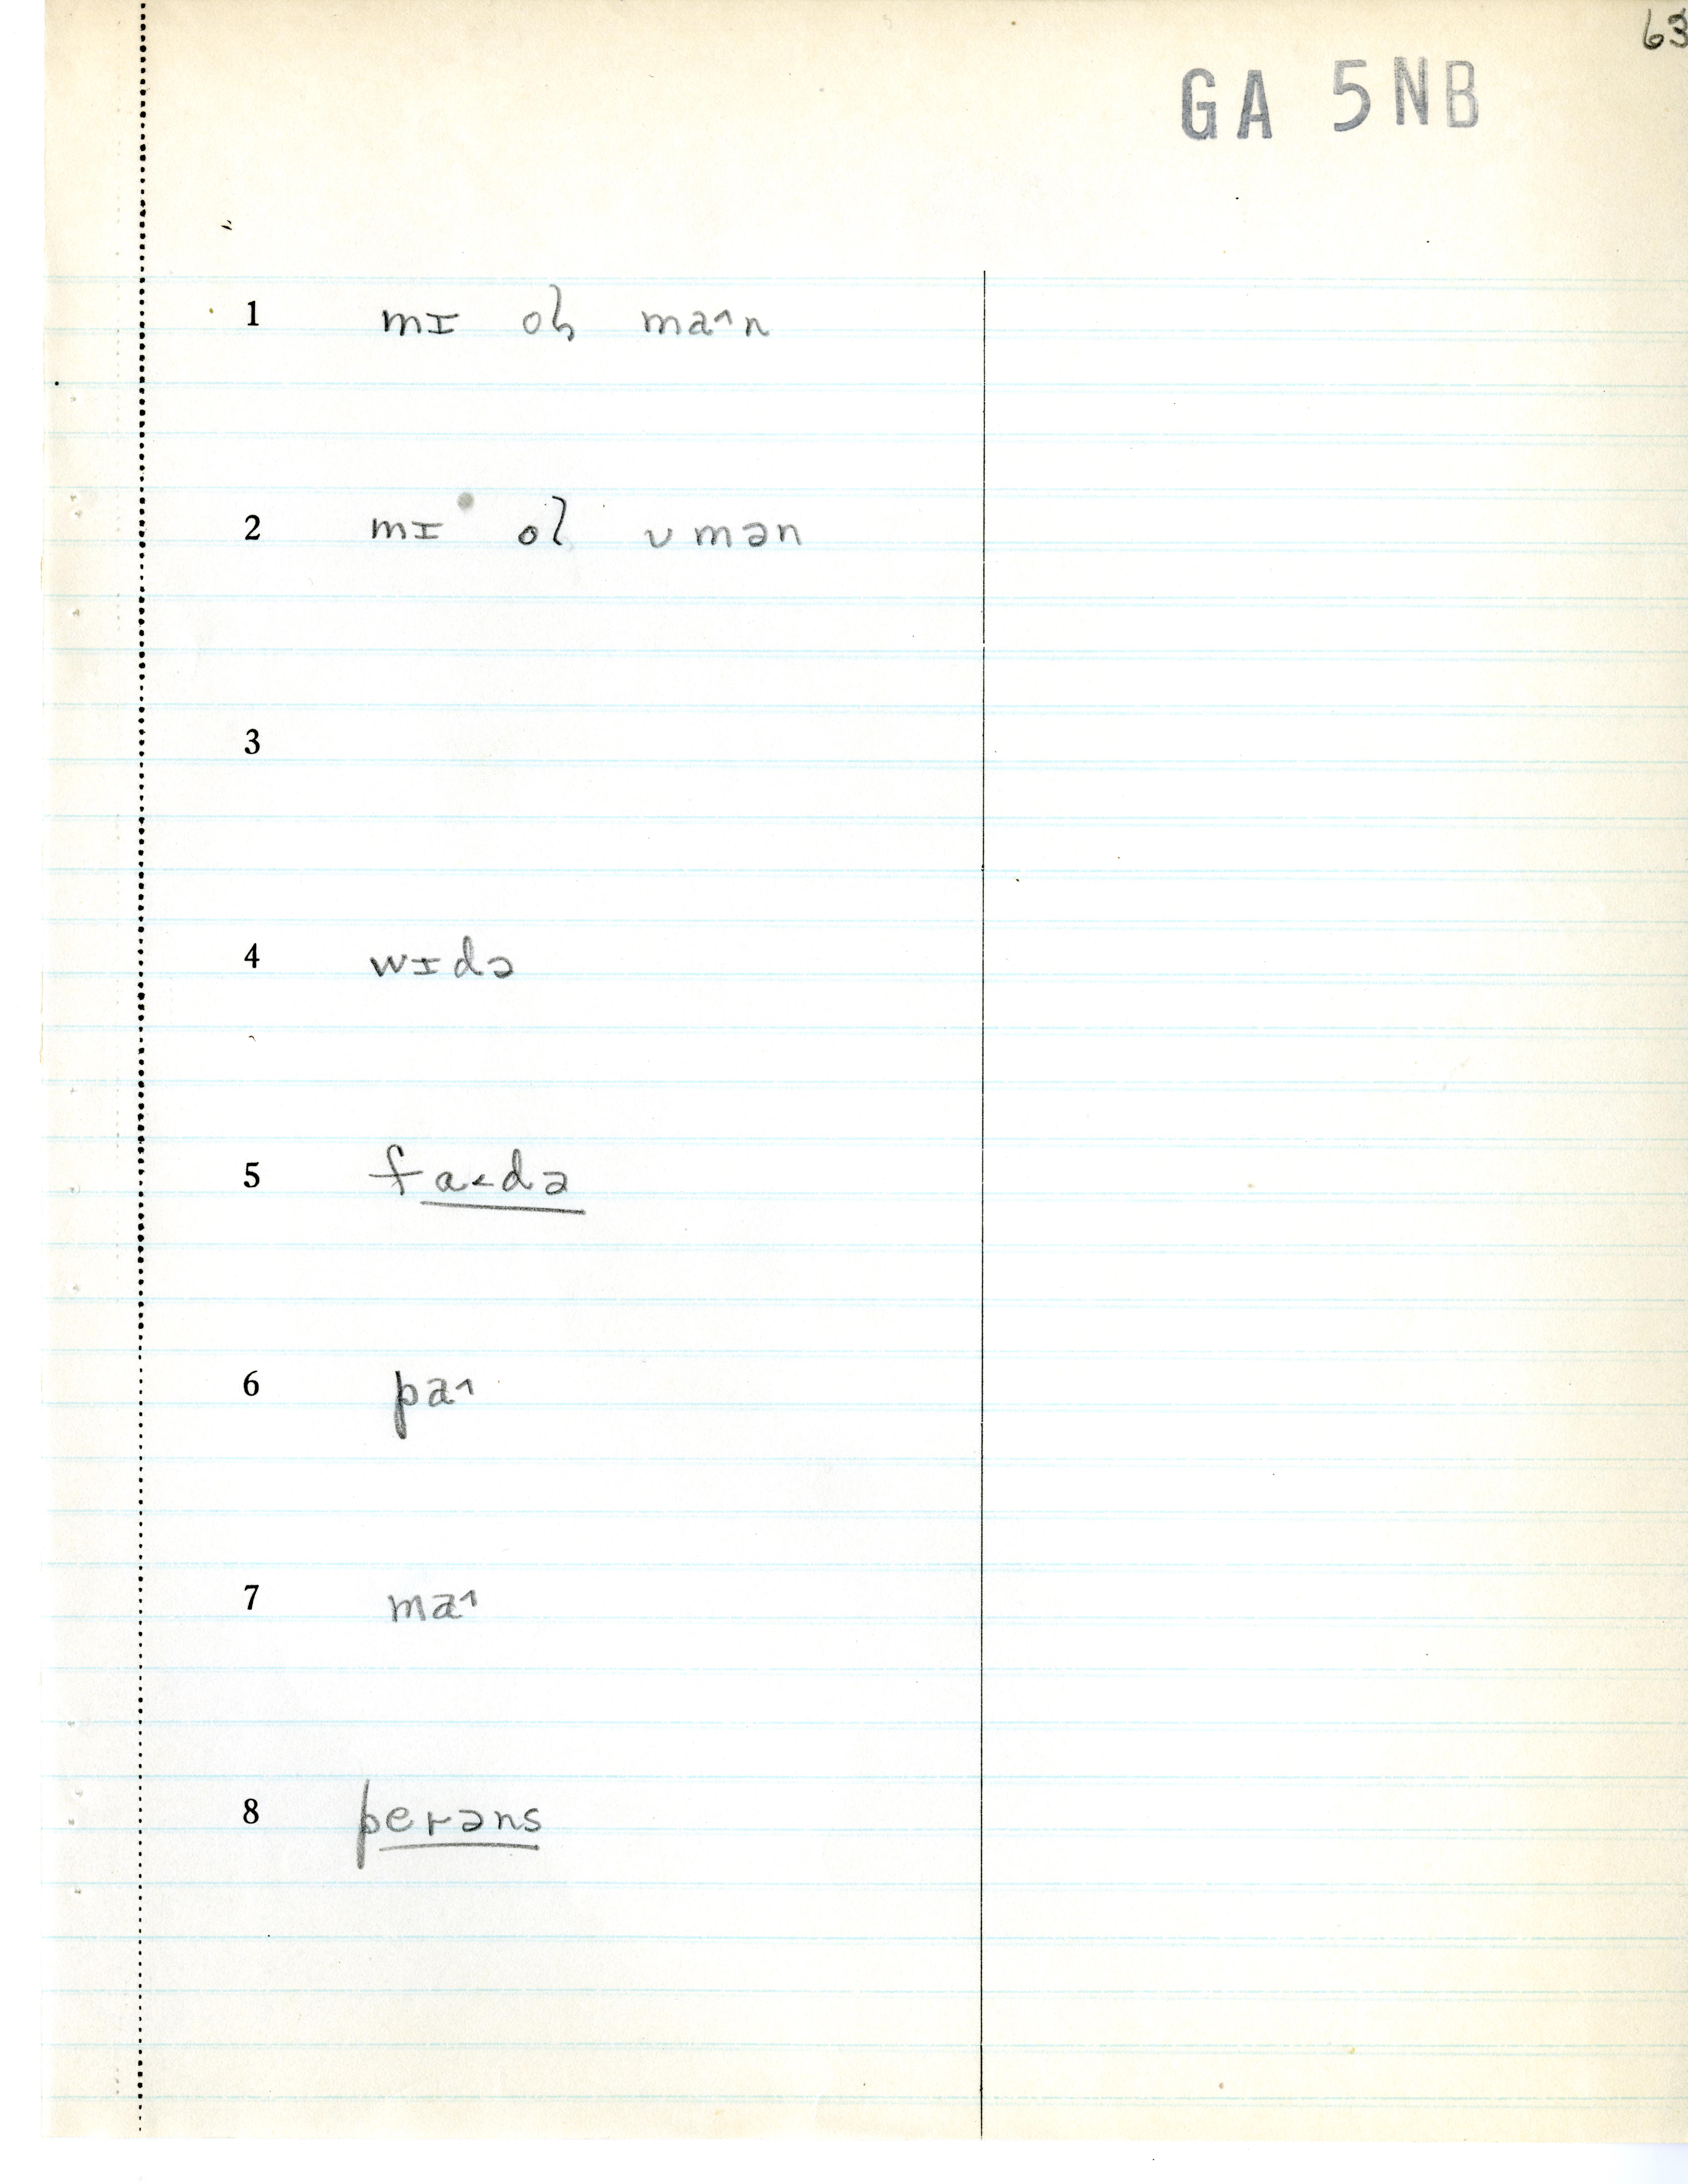 63
GA 5NB
1 mɪ oɫ ma˄n
2 mɪ ol ʊmən
3
4 wɪdə
5 fa˂də
6 pa˄
7 ma˄
8 perəns